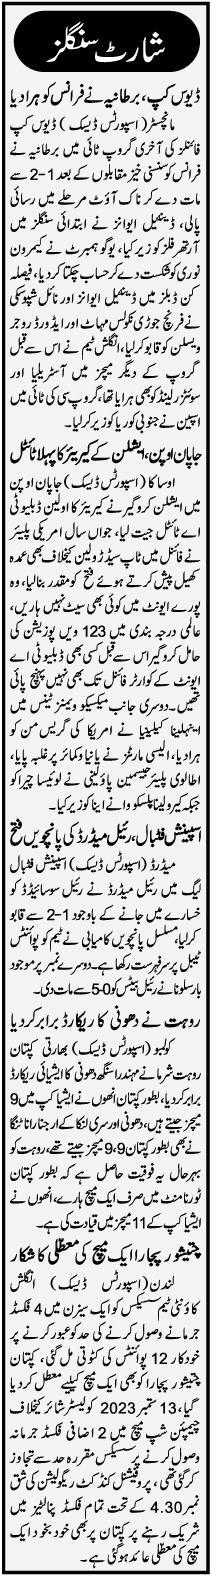 شارٹ سنگلز
ڈیوس کپ، برطانیہ نے فرانس کو ہرا دیا
مانچسٹر (اسپورٹس ڈیسک) ڈیوس کپ
فائنلز کی آخری گروپ ٹائی میں برطانیہ نے
فرانس کو سنسنی خیز مقابلوں کے بعد 1-2 سے
مات دے کر ناک آؤٹ مرحلے میں رسائی
پالی، ڈینیئل ایوانز نے ابتدائی سنگلز میں
آرتھر فلز کو زیر کیا، یوگو ہمبرٹ نے کیمرون
نوری کو شکست دے کر حساب چکتا کر دیا، فیصلہ
کن ڈبلز میں ڈینیئل ایوانز اور نائل شپوسکی
نے فرنچ جوڑی نکولس مہاٹ اور ایڈورڈ روجر
ویسلن کو قابو کر لیا، انگلش ٹیم نے اس سے قبل
گروپ کے دیگر میچز میں آسٹریلیا اور
سوئٹزرلینڈ کو بھی ہرایا تھا، گروپ سی کی ٹائی میں
اسپین نے جنوبی کوریا کو زیر کر لیا۔
جاپان اوپن، ایشلن کے کیریئر کا پہلا ٹائٹل
اوساکا (اسپورٹس ڈیسک) جاپان اوپن
میں ایشلن کروگیر نے کیریئر کا اولین ڈبلیو ٹی
اے ٹائٹل جیت لیا، جواں سال امریکی پلیئر
نے فائنل میں ٹاپ سیڈڈ ولین کیخلاف بھی عمدہ
کھیل پیش کرتے ہوئے فتح کو مقدر بنالیا، وہ
پورے ایونٹ میں کوئی بھی سیٹ نہیں ہاریں،
عالمی درجہ بندی میں 123 ویں پوزیشن کی
حامل کروگیر اس سے قبل کسی بھی ڈبلیو ٹی اے
ایونٹ کے کوارٹر فائنل تک بھی نہیں پہنچ پائی
تھیں۔ دوسری جانب میکسیکو ویمنز ٹینس میں
اینہلینا کیلینیا نے امریکا کی گریس من کو
ہرادیا، الیسی مارٹنز نے یانیا وکمائر پر غلبہ پایا،
اطالوی پلیئر جیسمین پاؤلینی نے لوئیسا چیراکو
جبکہ کیرولینا پلسکووا نے اینا کو زیر کیا۔
اسپینش فٹبال، رئیل میڈرڈ کی پانچویں فتح
میڈرڈ (اسپورٹس ڈیسک) اسپینش فٹبال
لیگ میں رئیل میڈرڈ نے رئیل سوسائیڈڈ کو
خسارے میں جانے کے باوجود 1-2 سے قابو
کر لیا، مسلسل پانچویں کامیابی نے ٹیم کو پوائنٹس
ٹیبل پر سرفہرست رکھا ہے۔ دوسرے نمبر پر موجود
بارسلونا نے رئیل بیٹس کو 0-5 سے مات دی۔
روہت نے دھونی کا ریکارڈ برابر کر دیا
کولمبو (اسپورٹس ڈیسک) بھارتی کپتان
روہت شرما نے مہندرا سنگھ دھونی کا ایشیائی ریکارڈ
برابر کر دیا، بطور کپتان انھوں نے ایشیا کپ میں 9
میچز جیتے ہیں، دھونی اور سری لنکا کے ارجنا رانا ٹنگا
نے بھی بطور کپتان 9،9 میچز جیتے تھے، روہت کو
بہرحال یہ فوقیت حاصل ہے کہ بطور کپتان
ٹورنامنٹ میں صرف ایک میچ ہارے، انھوں نے
ایشیا کپ کے 11 میچز میں قیادت کی ہے۔
چتیشور پجارا ایک میچ کی معطلی کا شکار
لندن (اسپورٹس ڈیسک) انگلش
کاؤنٹی ٹیم سسیکس کو ایک سیزن میں 4 فکسڈ
جرمانے وصول کرنے کی حد کو عبور کرنے پر
خودکار 12 پوائنٹس کی کٹوتی مل گئی، کپتان
چتیشور پجارا کو بھی ایک میچ کیلیے معطل کر دیا
گیا، 13 ستمبر 2023 کو لیسٹر شائر کیخلاف
چیمپئن شپ میچ میں 2 اضافی فکسڈ جرمانہ
وصول کرنے پر سسیکس مقررہ حد سے تجاوز
کر گئی تھی، پروفیشنل کنڈکٹ ریگولیشن کی شق
نمبر 4.30 کے تحت تمام فکسڈ پنالٹیز میں
شریک رہنے پر کپتان پر بھی خود بخود ایک
میچ کی معطلی عائد ہوگئی ہے۔